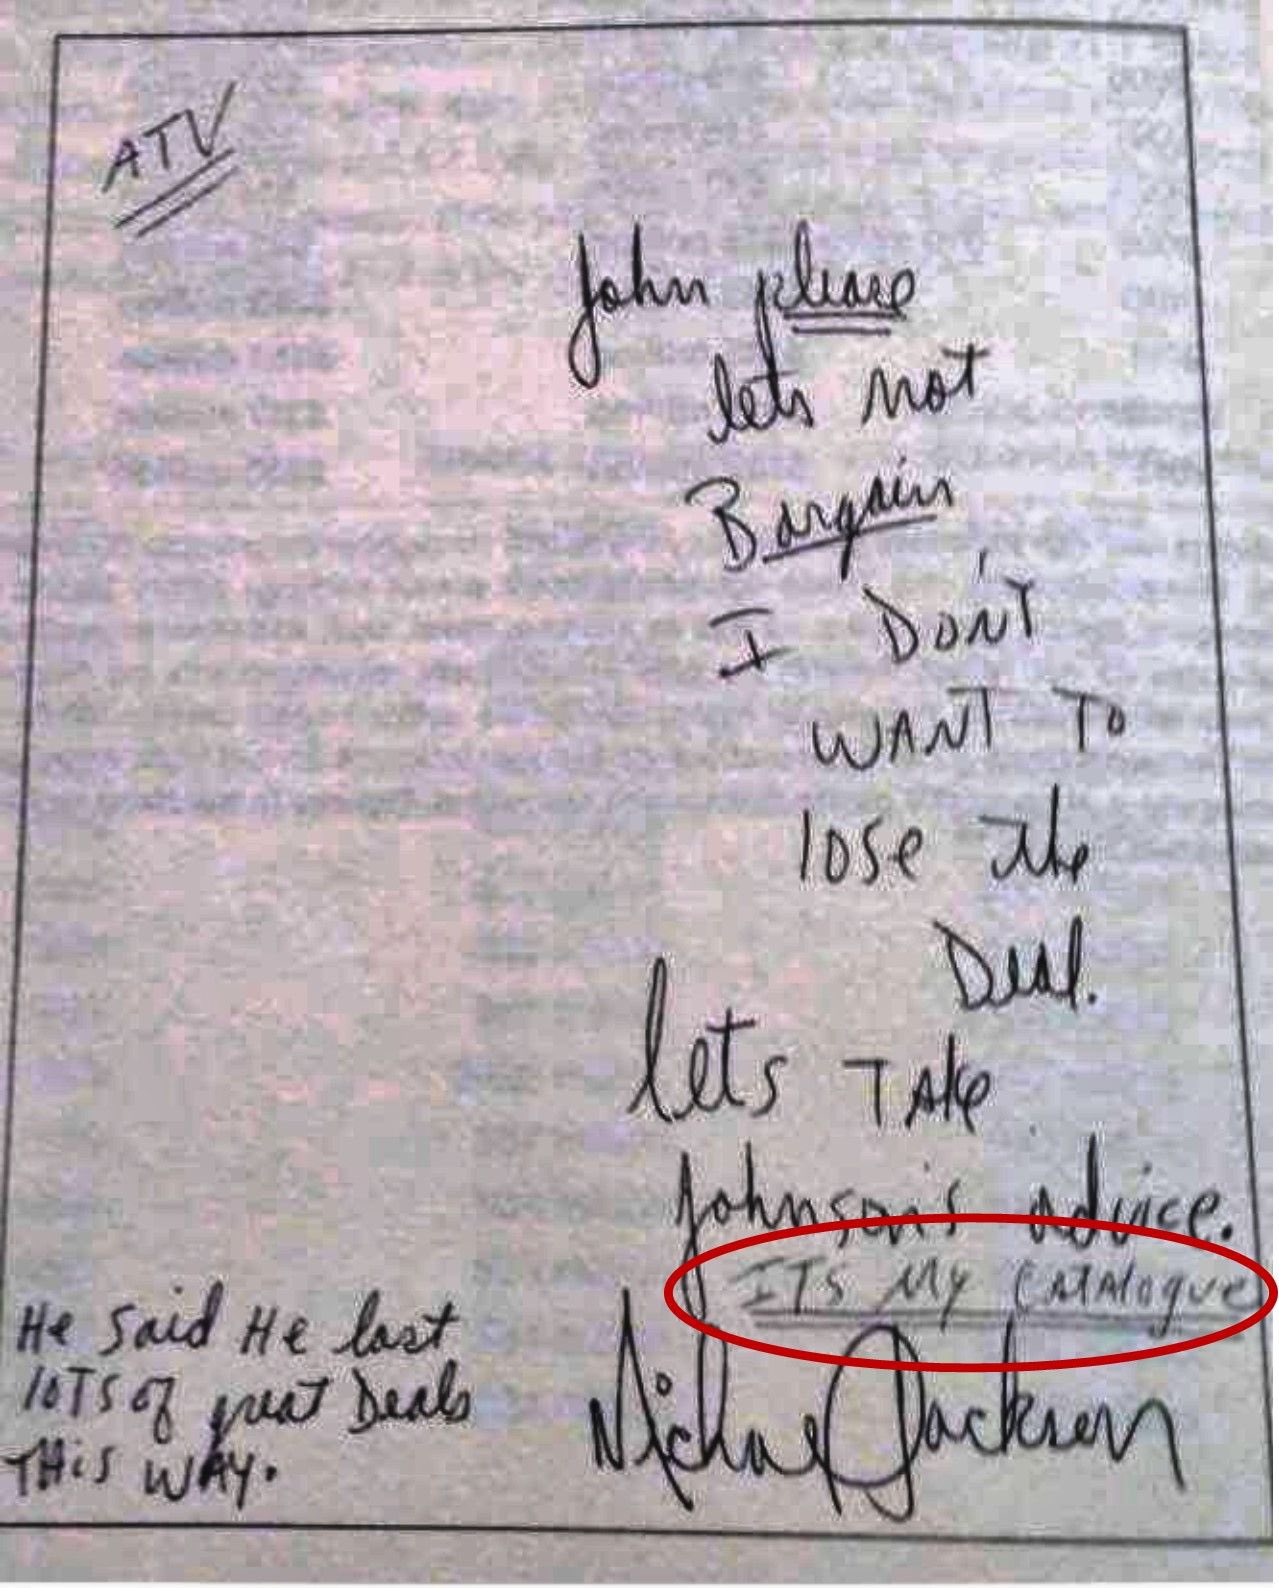 ATV
John please
lets not
Bargain
I DON'T
WANT TO
lose the
Deal.
lets TAke
Johnson's advice.
ITS My CATAlogue
Michael Jackson
He said He lost
lOTS of great Deals
THis WAy.